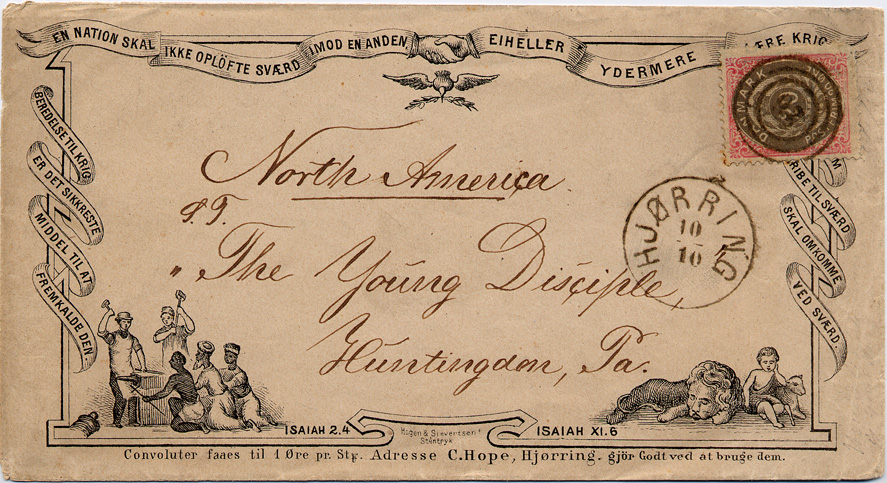 EN NATION SKAL IKKE OPLÖFTE SVÆRD IMOD EN ANDEN, EIHELLER YDERMERE LÆRE KRIG
BEREDELSE TIL KRIG
ER DET SIKKRESTE
MIDDEL TIL AT
FREMKALDE DEN
DANMARK
North America.
S.T.
"The Young Disciple,
Huntingdon, Pa.
HJØRRING
10
10
GRIBE TIL SVÆRD
SKAL OMKOMME
VED SVÆRD.
ISAIAH 2.4
Hagen & Sievertsen's
Sténtryk
ISAIAH XI.6
Convoluter faaes til 1 Øre pr. Stk. Adresse C.Hope, Hjørring. gjör Godt ved at bruge dem.